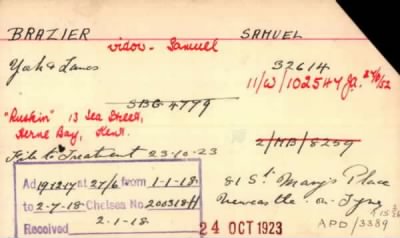 BRAZIER SAMUEL
widow - Samuel
York & Lancs 32614
11/W/102547
SBG 4779
"Ruskin" 13 Sea Street,
Herne Bay, Kent. 2/MB/8259
File to Treatment 23-10-23
Ad 191217 at 27/6 from 1-1-18
to 2-7-18 Chelsea No 200318H
Received 2-1-18
81 St Mary's Place
Newcastle on Tyne
24 OCT 1923
APD /3389